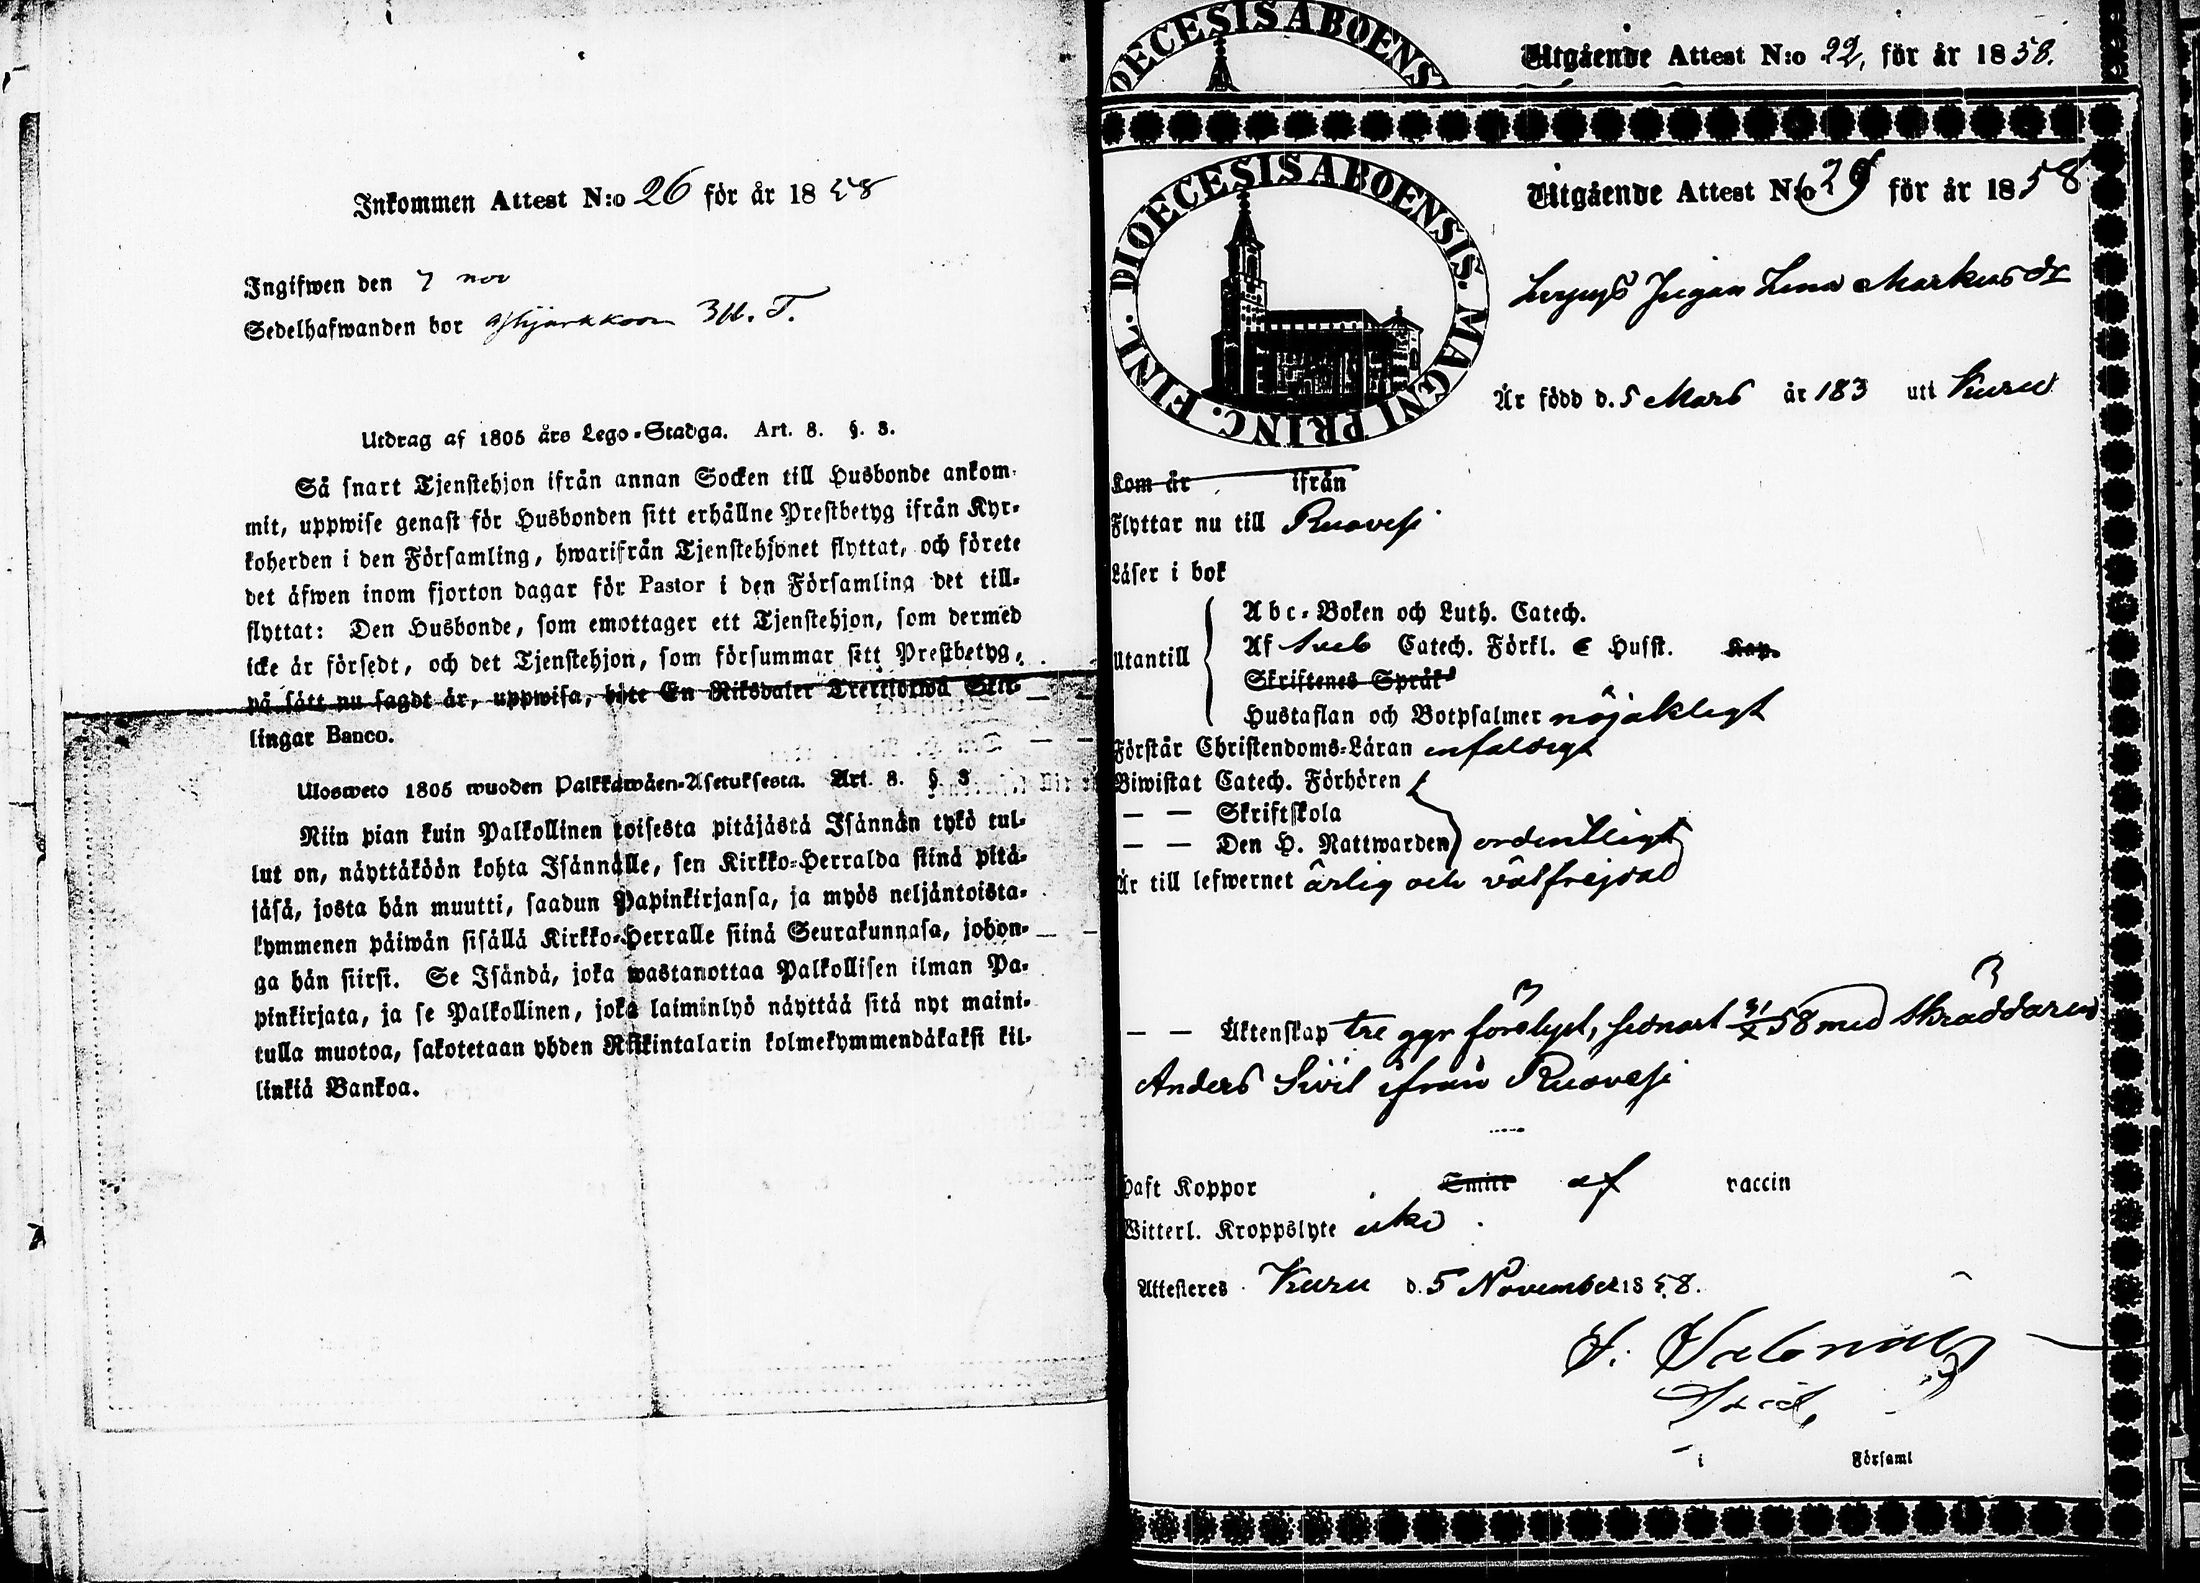 Inkommen Attest N:o 26 för år 1858
Ingifwen den 7 nov
Sedelhafwanden bor
Utdrag af 1805 års Lego-Stadga. Art. 8. §. 3.
Så snart Tjenstehjon ifrån annan Socken till Husbonde ankom-
mit, uppwise genast för Husbonden sitt erhållne Prestbetyg ifrån Kyr-
koherden i den Församling, hwarifrån Tjenstehjonet flyttat, och förete
det äfwen inom fjorton dagar för Pastor i den Församling det till-
flyttat: Den Husbonde, som emottager ett Tjenstehjon, som dermed
icke är försedt, och det Tjenstehjon, som försummar sitt Prestbetyg,
på sätt nu sagdt är, uppwisa, böte En Riksdaler Trettiotwå Skil-
lingar Banco.
Ulosweto 1805 wuoden Palkkawäen-Asetuksesta. Art. 8. § 3
Niin pian kuin Palkollinen toisesta pitäjästä Isännän tykö tul-
lut on, näyttäköön kohta Isännälle, sen Kirkko-Herralda siinä pitä-
jäsä, josta hän muutti, saadun Papinkirjansa, ja myös neljäntoista-
kymmenen päiwän sisällä Kirkko-Herralle siinä Seurakunnasa, johon-
ga hän siirsi. Se Isändä, joka wastanottaa Palkollisen ilman Pa-
pinkirjata, ja se Palkollinen, joka laiminlyö näyttää sitä nyt maini-
tulla muotoa, sakotetaan yhden Riikintalarin kolmekymmendäkaksi kil-
linkiä Bankoa.
DIOECESIS ABOENS
Utgående Attest N:o 22, för år 1858.
DIOECESIS ABOENSIS. MAGNI PRINC. FINL.
Utgående Attest N:o 29 för år 1858
Pigan Lena Markus dr
Är född d. 5 Mars år 183 uti Kuru
Kom år ifrån
Flyttar nu till Ruovesi
Läser i bok
Utantill
Abc-Boken och Luth. Catech.
Af Sveb Catech. Förkl. Husst. Kap.
Skriftenes Språk
Hustaflan och Botpsalmer nöjaktligt
Förstår Christendoms-Läran enfaldigt
Biwistat Catech. Förhören
— — Skriftskola
— — Den H. Nattwarden ordentligt
Är till lefwernet ärlig och välfrejdad
— — Äktenskap tre ggr förelyst, sednast 31/X 58 med Skräddaren
Anders Siöl ifrån Ruovesi
Haft Koppor Smitt af vaccin
Witterl. Kroppslyte icke
Attesteres Kuru d. 5 November 1858.
i Församl